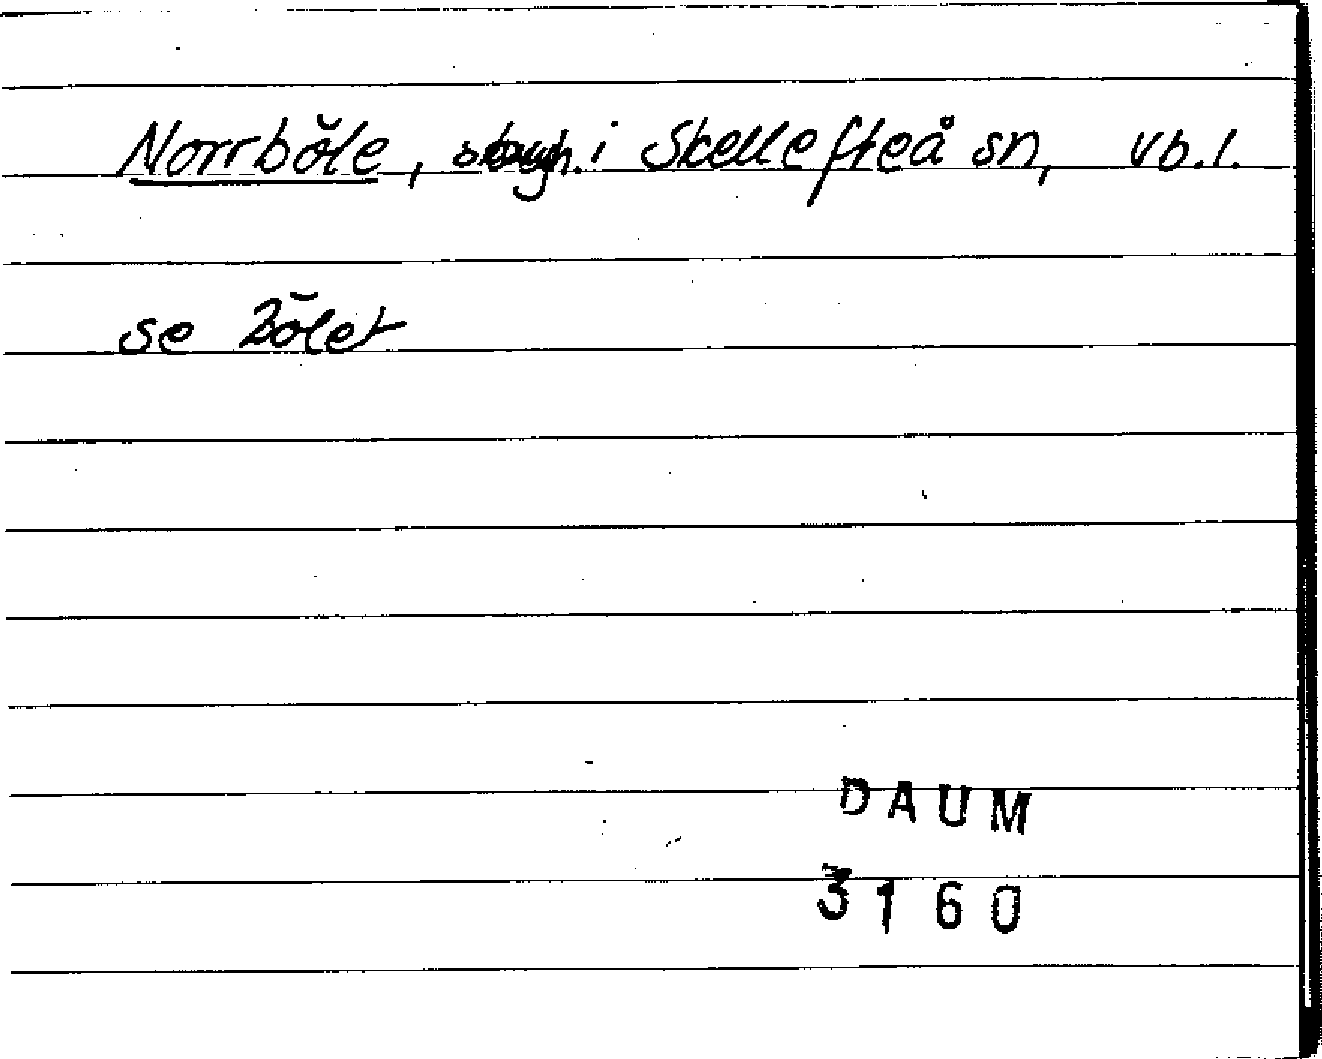 Norrböle, i Skellefteå sn, vb.l.
se Bölet
DAUM
3160